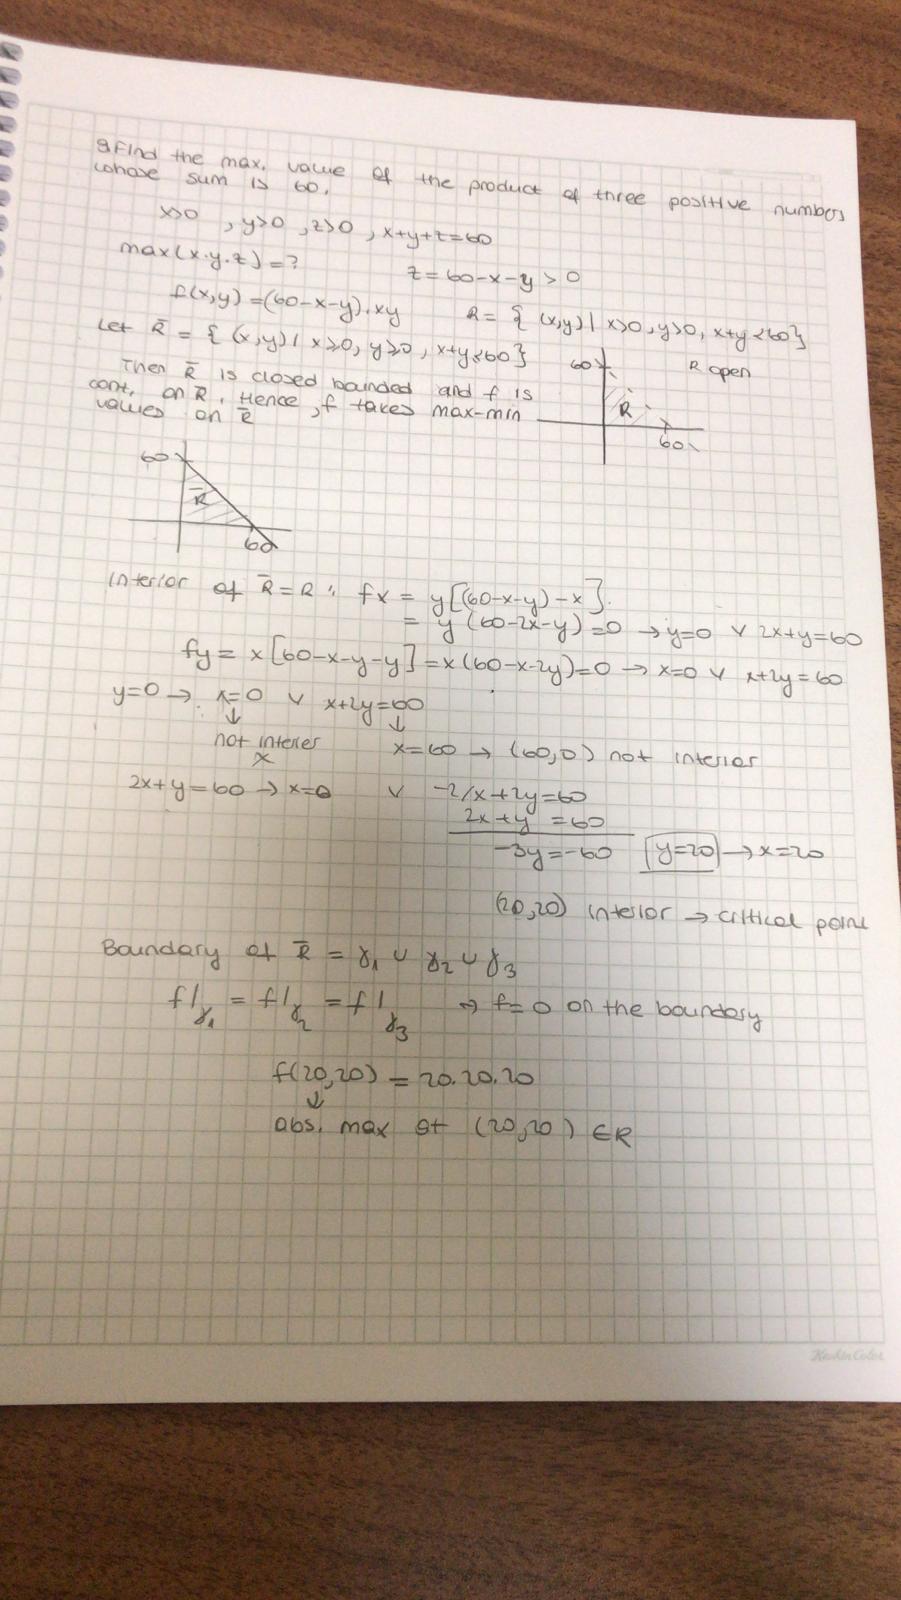 8 Find the max. value of the product of three positive numbers
whose sum is 60.
x>0 , y>0 , z>0 , x+y+z=60
max(x.y.z)=? z = 60-x-y > 0
f(x,y) = (60-x-y).xy R = { (x,y) | x>0, y>0, x+y<60}
Let R̄ = { (x,y) | x≥0, y≥0, x+y≤60}
60 R open
Then R̄ is closed bounded and f is
cont. on R̄. Hence, f takes max-min
values on R̄
R
60
60
R̄
60
Interior of R̄=R: fx = y[(60-x-y)-x].
= y(60-2x-y)=0 → y=0 ∨ 2x+y=60
fy = x[60-x-y-y] = x(60-x-2y)=0 → x=0 ∨ x+2y=60
y=0 → x=0 ∨ x+2y=60
↓ ↓
not interier x=60 → (60,0) not interior
x
2x+y=60 → x=0 ∨ -2/x+2y=60
2x+y =60
-3y=-60 y=20 → x=20
(20,20) interior → critical point
Boundary of R̄ = γ₁ ∪ γ₂ ∪ γ₃
f|γ₁ = f|γ₂ = f|γ₃ → f=0 on the boundary
f(20,20) = 20.20.20
↓
abs. max at (20,20) ∈R
KeskinColor